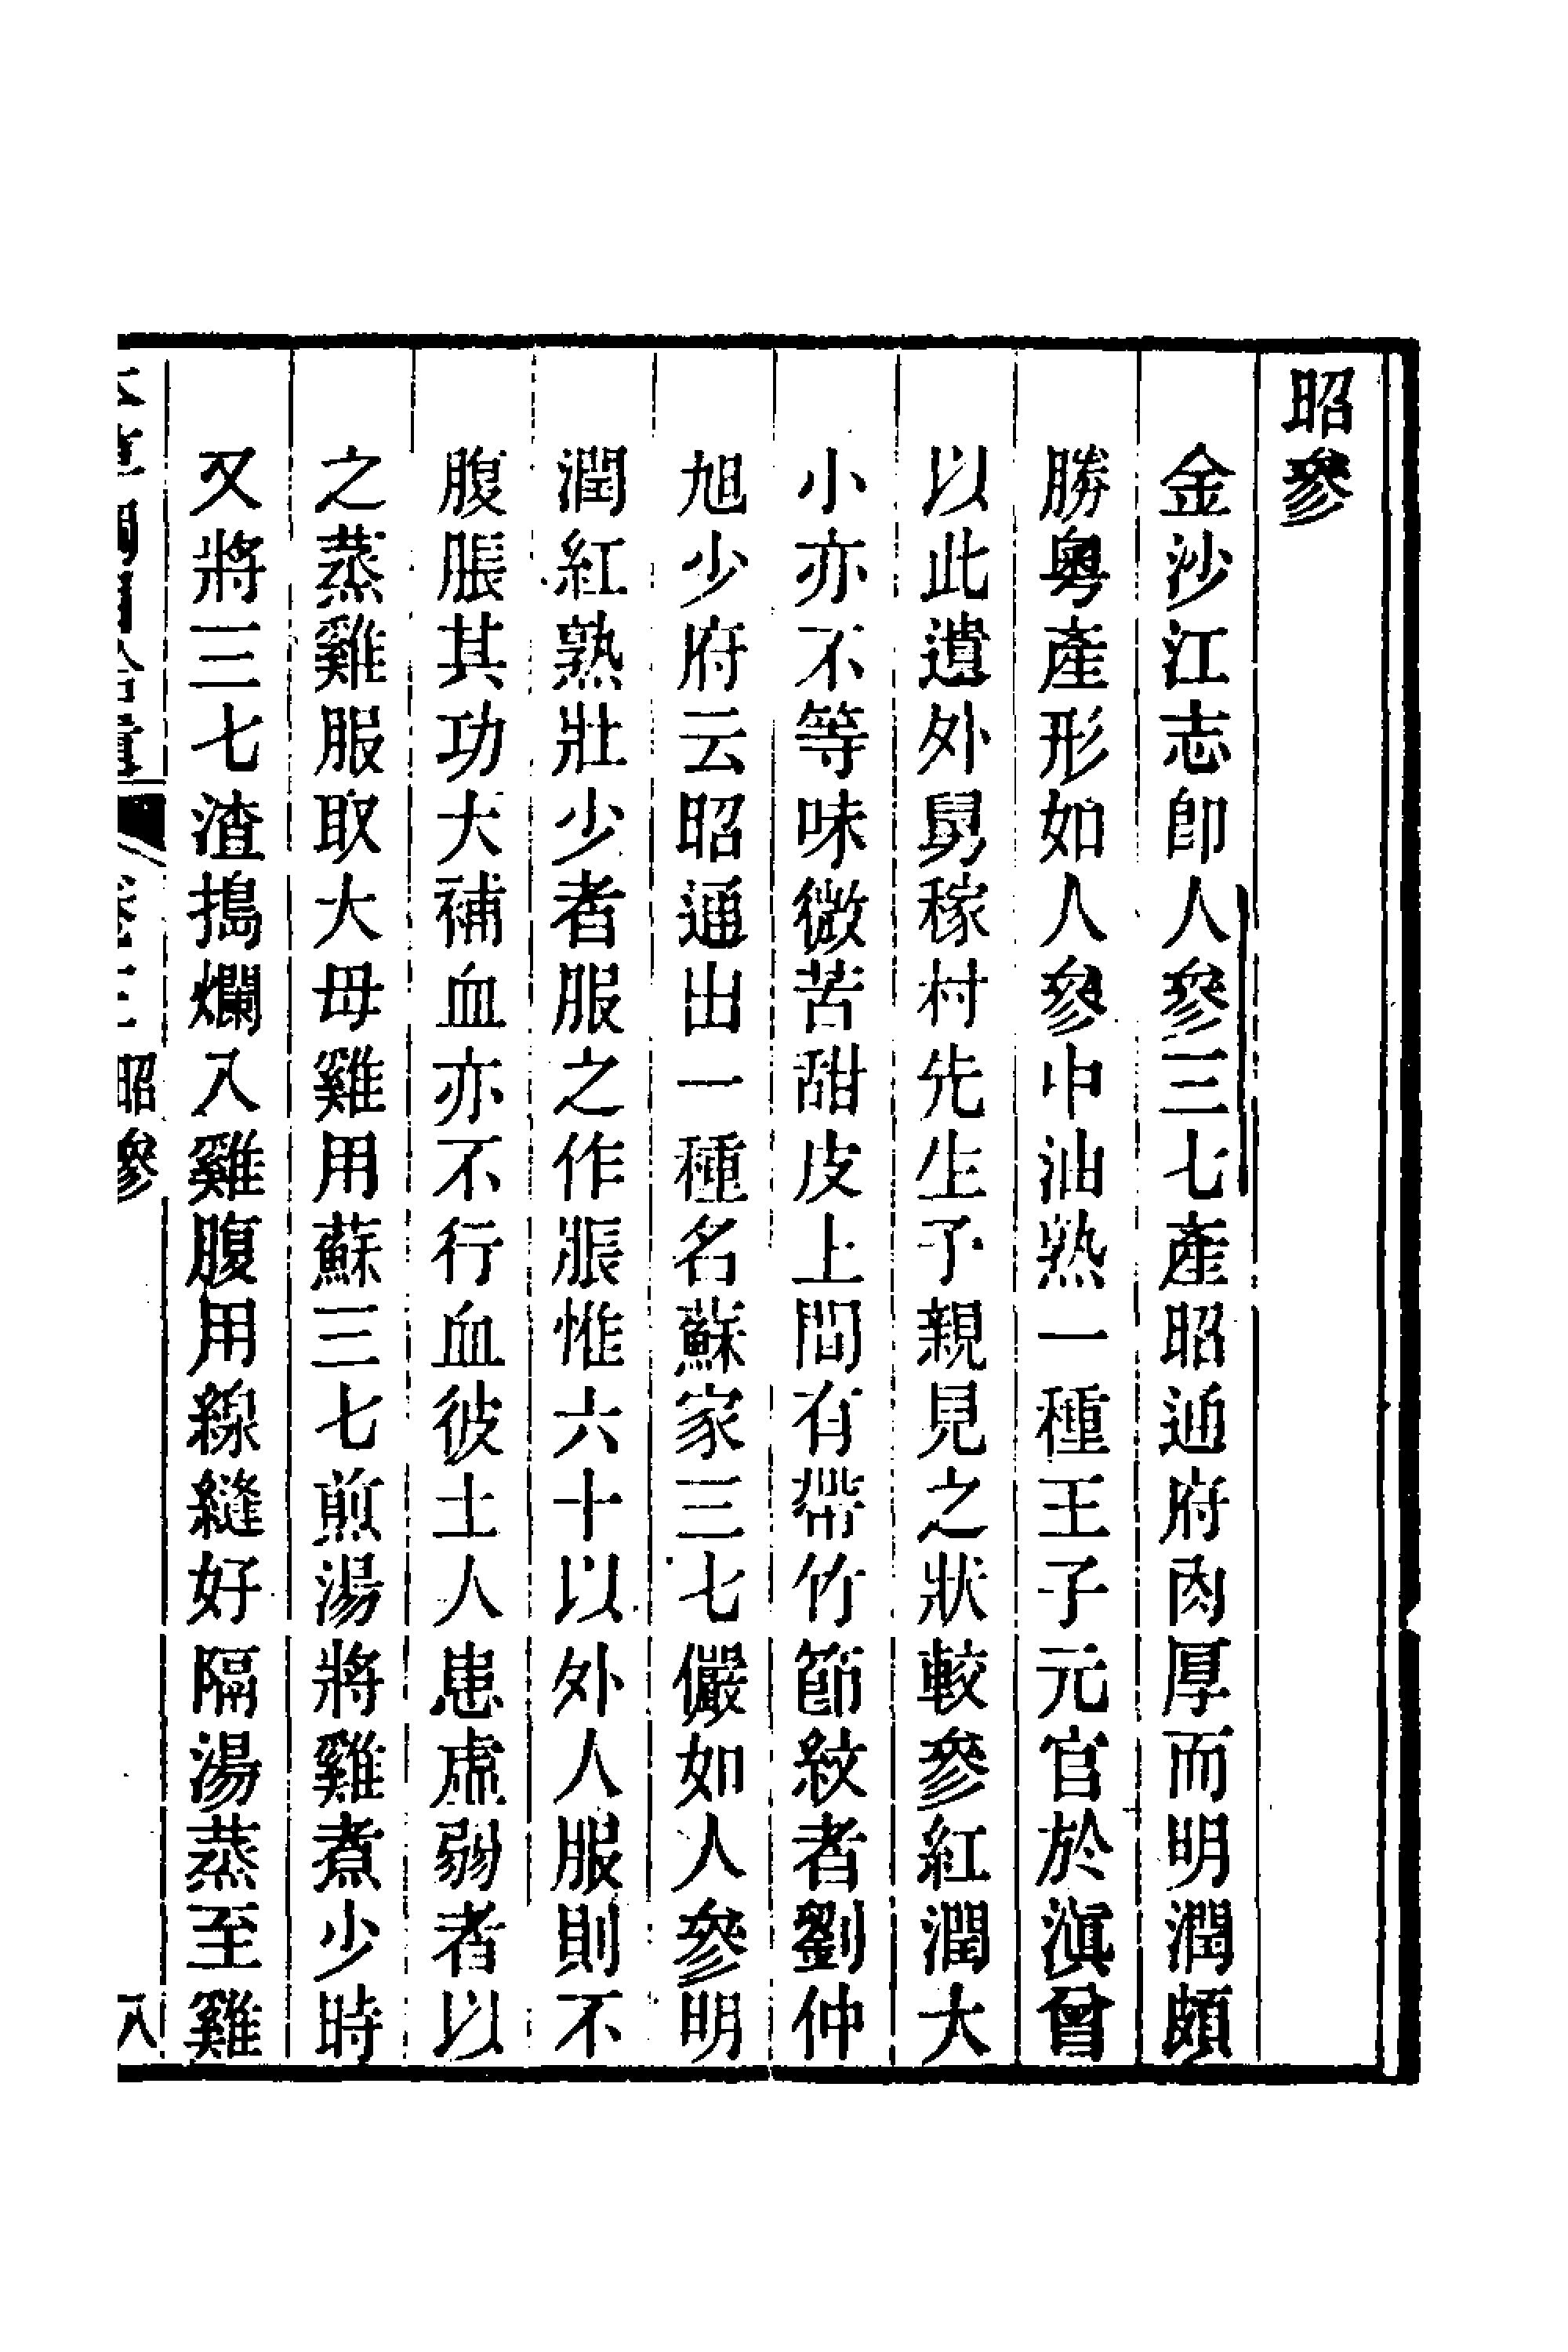 昭參
金沙江志卽人參三七產昭通府肉厚而明潤頗
勝粵產形如人參中油熟一種王子元官於滇曾
以此遺外舅稼村先生予親見之狀較參紅潤大
小亦不等味微苦甜皮上間有帶竹節紋者劉仲
旭少府云昭通出一種名蘇家三七儼如人參明
潤紅熟壯少者服之作脹惟六十以外人服則不
腹脹其功大補血亦不行血彼土人患虛弱者以
之蒸雞服取大母雞用蘇三七煎湯將雞煮少時
又將三七渣搗爛入雞腹用線縫好隔湯蒸至雞
本草綱目拾遺 卷三 昭參 八